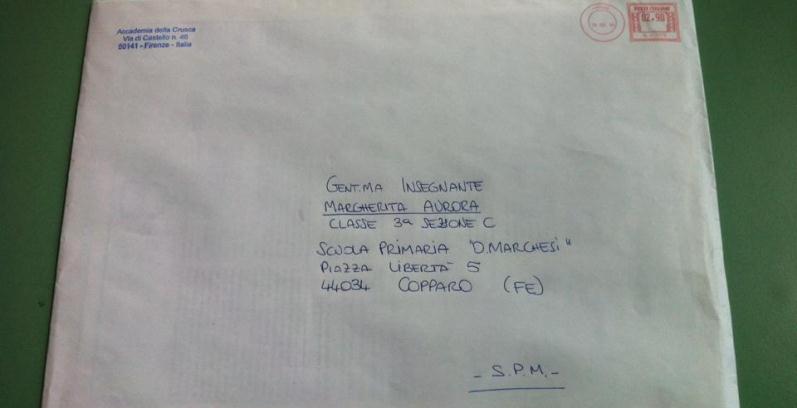 Accademia della Crusca
Via di Castello n. 46
50141 - Firenze - Italia
POSTE ITALIANE
02.90
GENT.MA INSEGNANTE
MARGHERITA AURORA
CLASSE 3a SEZIONE C
SCUOLA PRIMARIA "O.MARCHESI"
PIAZZA LIBERTÀ 5
44034 COPPARO (FE)
- S.P.M. -